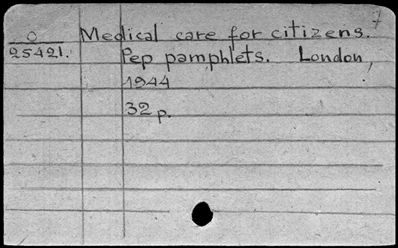 7
O Medical care for citizens.
25421. Pep pamphlets. London,
1944
32 p.